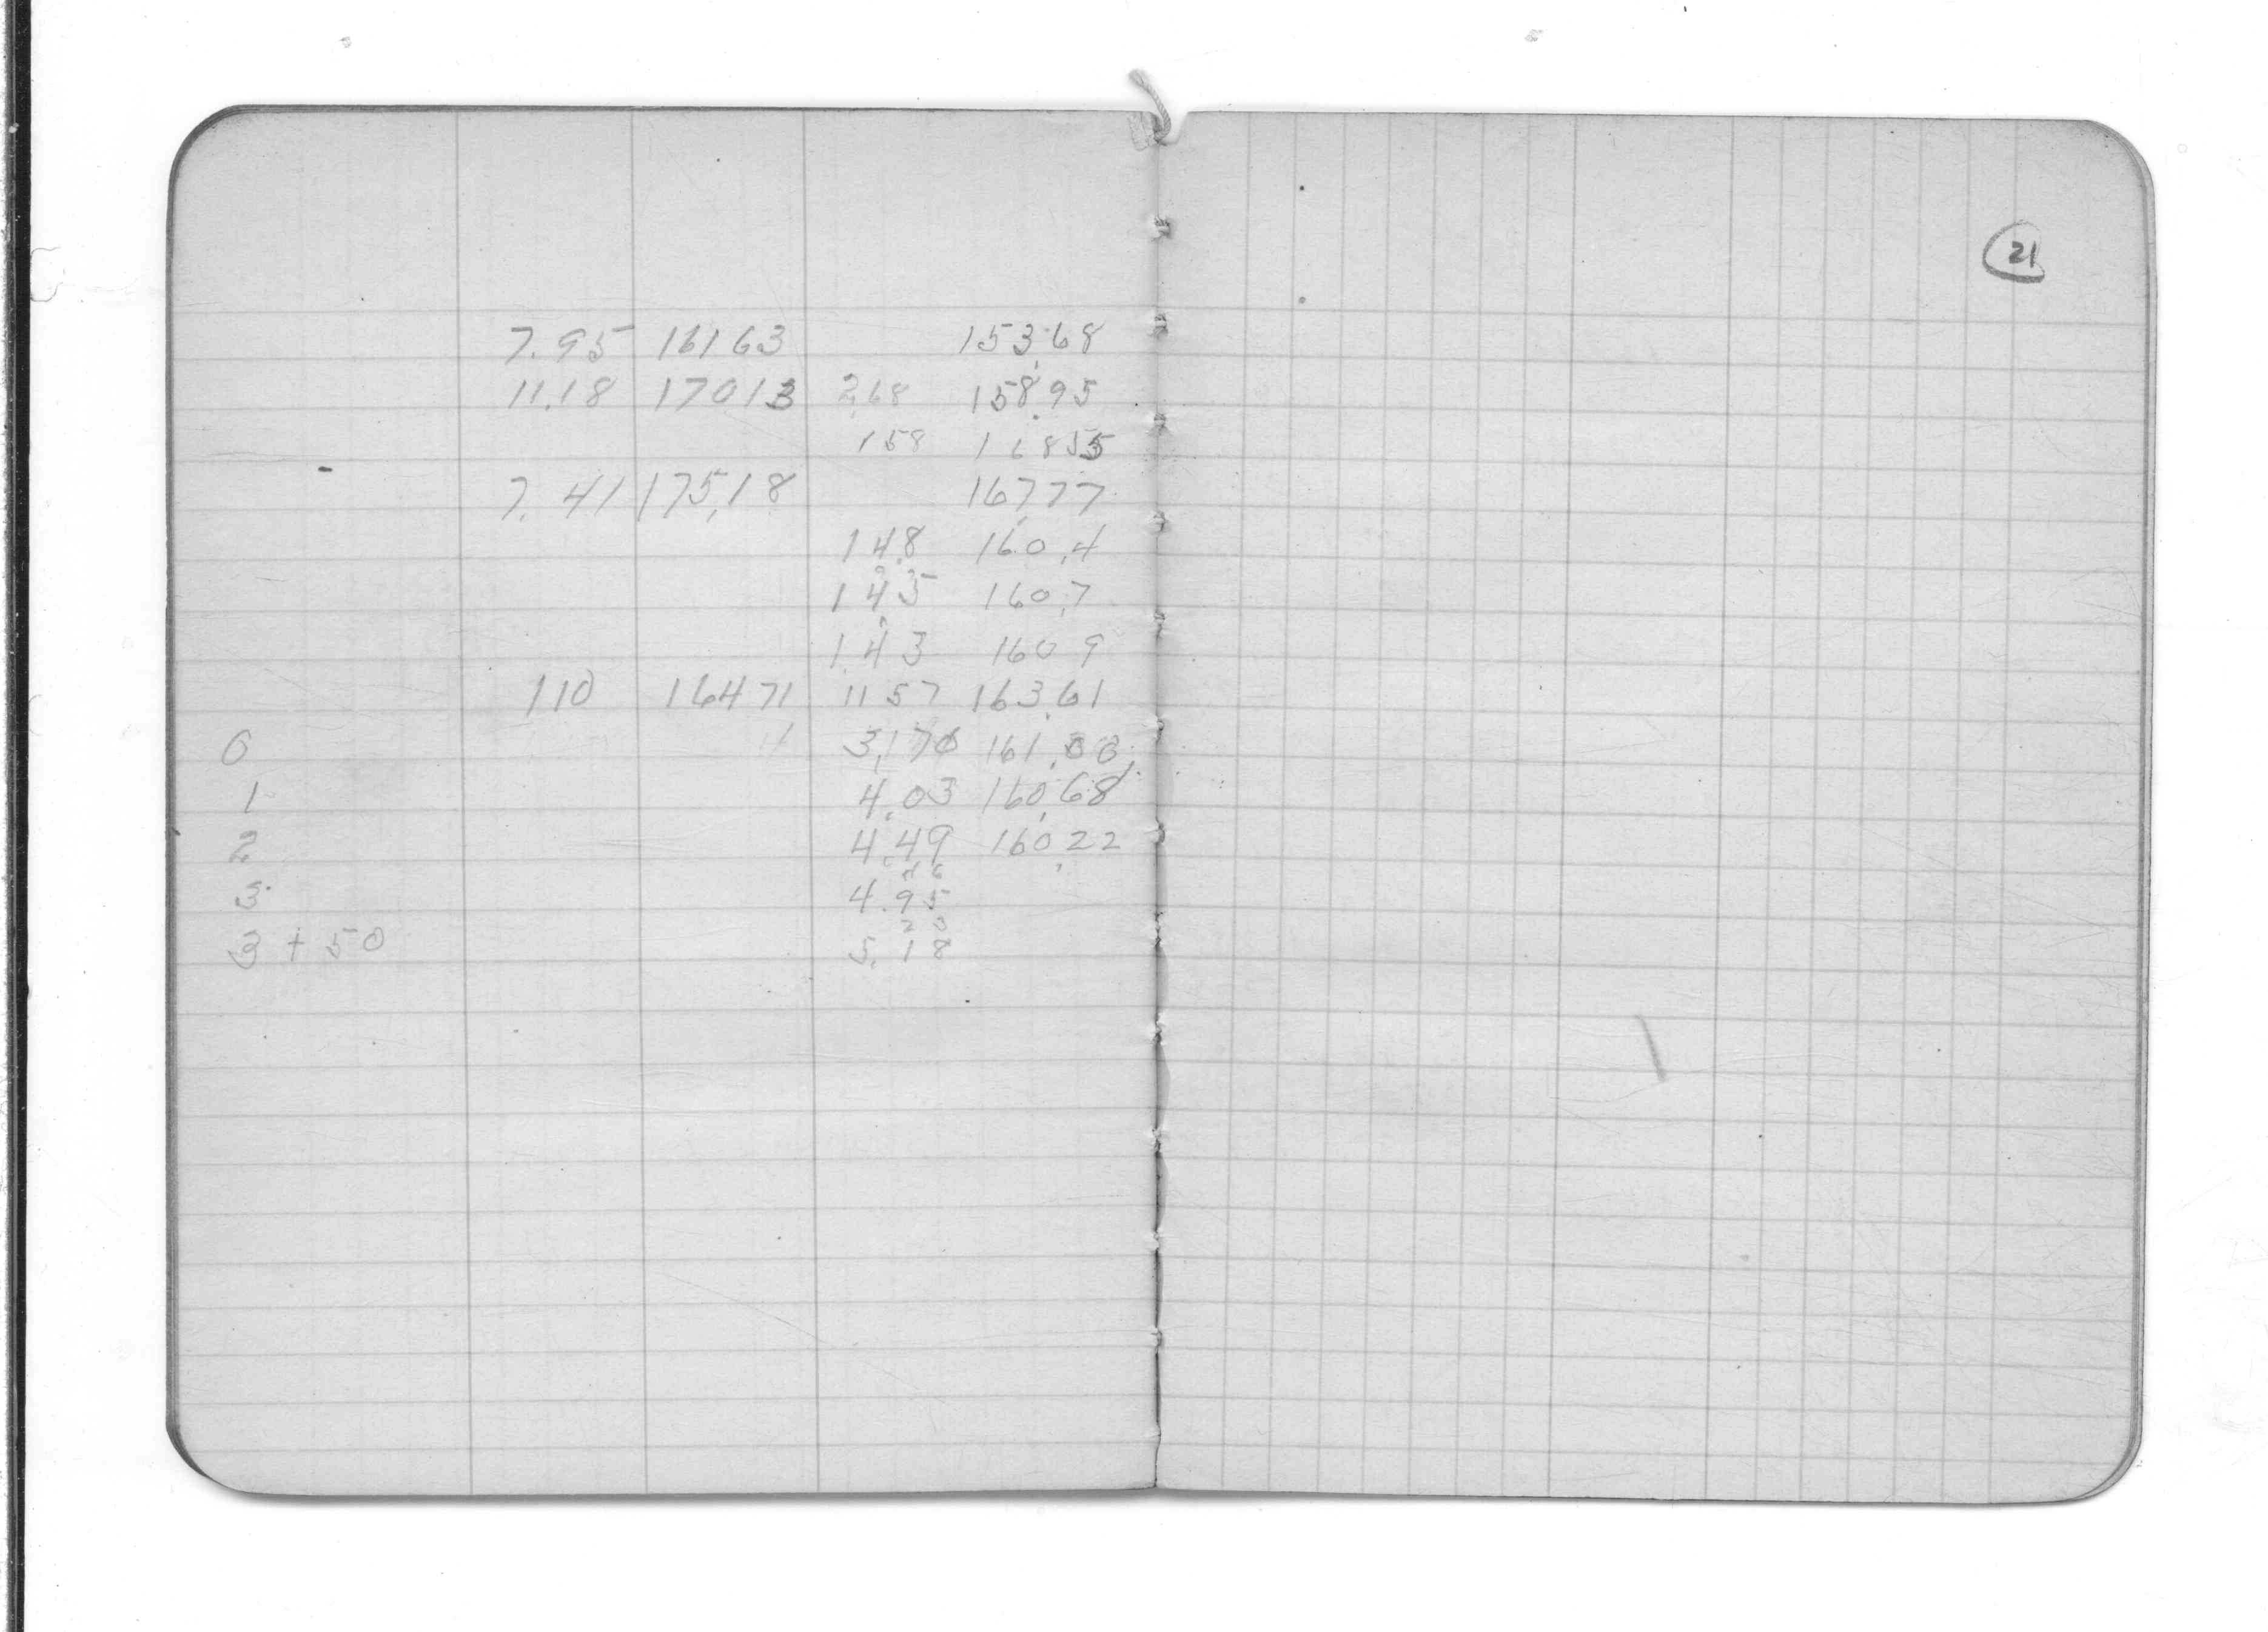 21
7.95 161 63 153.68
11.18 170 13 2.68 158.95
158 168 55
7.41 175.18 167.77
14.8 160.4
14.5 160.7
14.3 160 9
110 164 71 11 57 163.61
0 161.
1 4.03 160.68
2 4.49 160.22
46
3 4.95
23
3 + 50 5.18